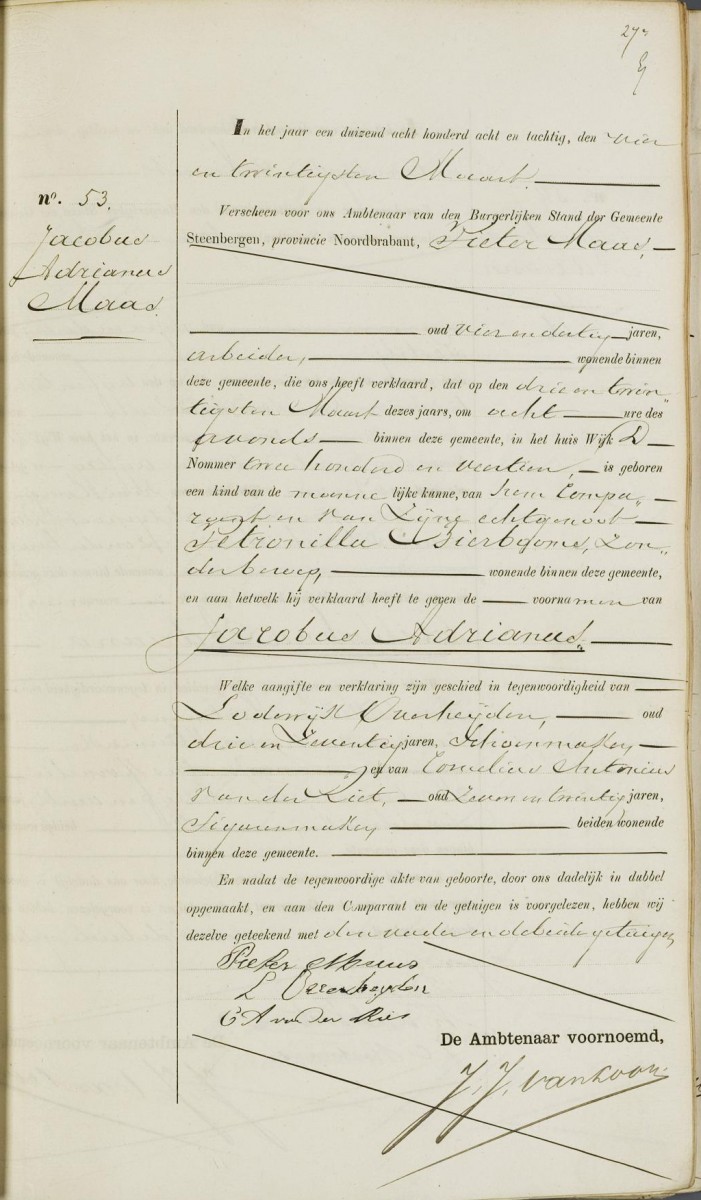 27
no. 53.
Jacobus
Adrianus
Maas.
In het jaar een duizend acht honderd acht en tachtig, den vier
en twintigsten Maart.
Verscheen voor ons Ambtenaar van den Burgerlijken Stand der Gemeente
Steenbergen, provincie Noordbrabant, Pieter Maas,
oud vier en dertig jaren,
arbeider, wonende binnen
deze gemeente, die ons heeft verklaard, dat op den drie en twin„
tigsten Maart dezes jaars, om acht ure des
avonds binnen deze gemeente, in het huis Wijk D
Nommer twee honderd en veertien, is geboren
een kind van de manne lijke kunne, van hem Compa„
rant en van Zijne echtgenoot
Petronilla Bierbooms, Zon„
der beroep, wonende binnen deze gemeente,
en aan hetwelk hij verklaard heeft te geven de voornamen van
Jacobus Adrianus.
Welke aangifte en verklaring zijn geschied in tegenwoordigheid van
Lodewijk Overheijden, oud
drie en Zeventig jaren, Schoenmaker
en van Cornelius Antonius
van der Riet, oud Zeven en twintig jaren,
Sigarenmaker beiden wonende
binnen deze gemeente.
En nadat de tegenwoordige akte van geboorte, door ons dadelijk in dubbel
opgemaakt, en aan den Comparant en de getuigen is voorgelezen, hebben wij
dezelve geteekend met den vader en de beide getuigen
Pieter Maas
L Overheyden
C A van der Riet
De Ambtenaar voornoemd,
J. J. van Loon